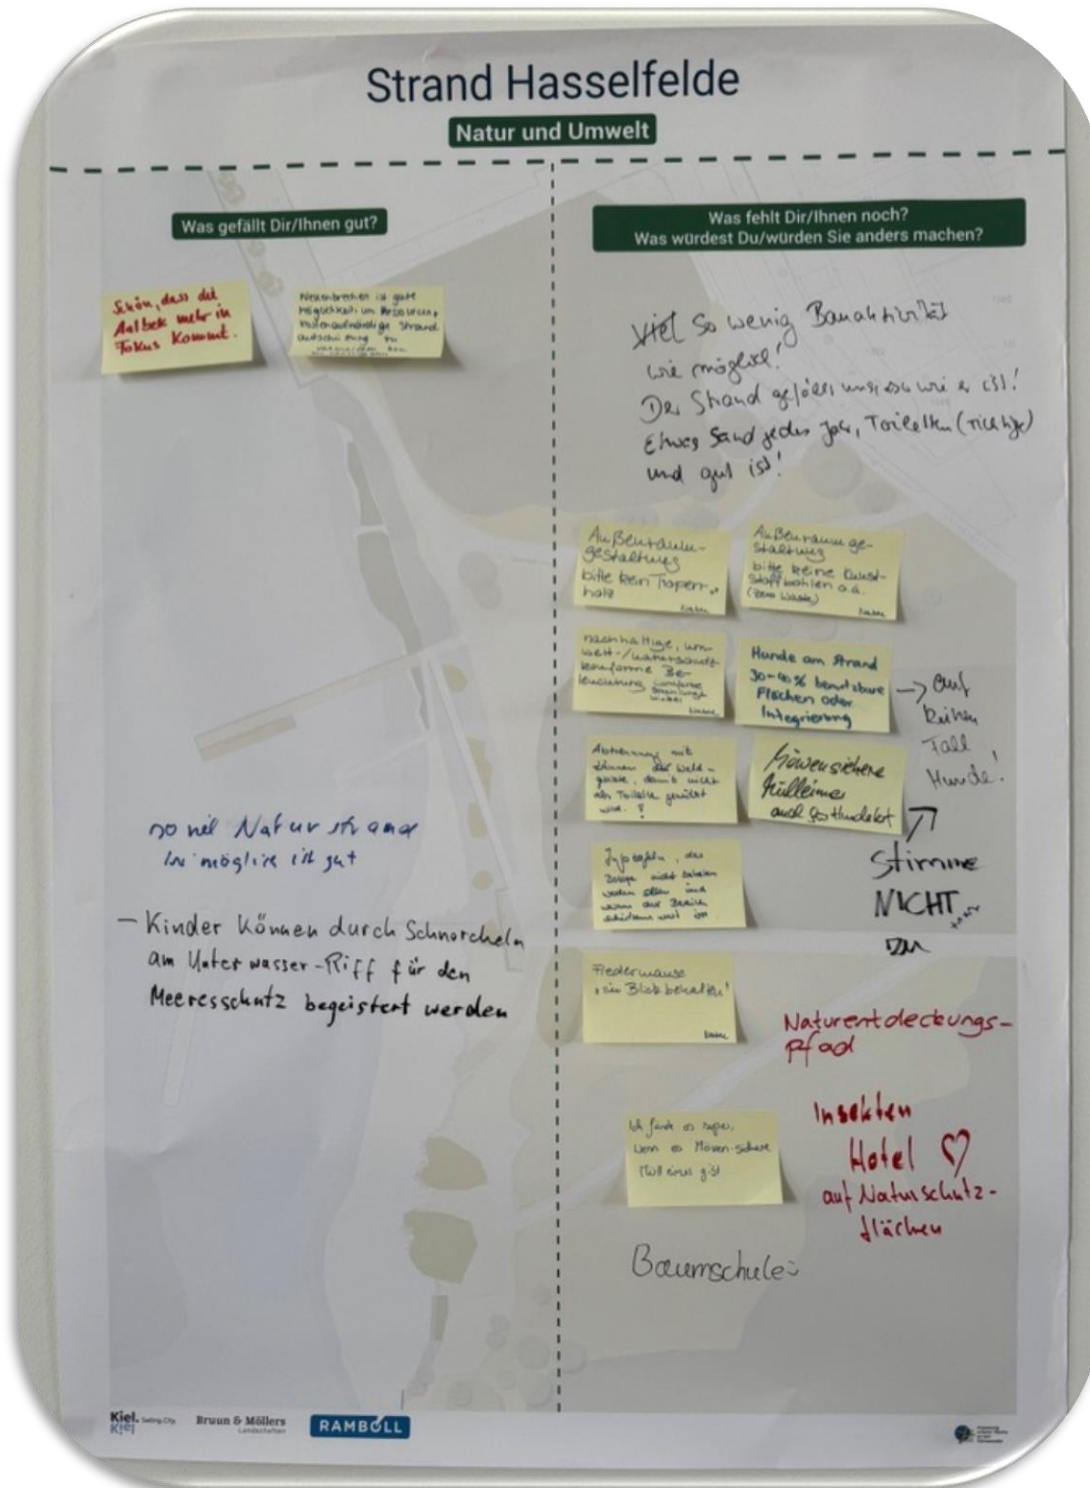 Strand Hasselfelde
Natur und Umwelt
Was gefällt Dir/Ihnen gut?
Schön, dass die
Aalbek mehr in
Fokus kommt.
Wellenbrechen ist gute
Möglichkeit um Ressourcen,
kostenaufwändige Strand
aufschüttung zu
so viel Naturstrand
wie möglich ist gut
– Kinder können durch Schnorcheln
am Unterwasser-Riff für den
Meeresschutz begeistert werden
Was fehlt Dir/Ihnen noch?
Was würdest Du/würden Sie anders machen?
So wenig Bauaktivität
wie möglich!
Der Strand gefällt uns, so wie er ist!
Etwas Sand jedes Jahr, Toiletten (richtige)
und gut ist!
Außenraum-
gestaltung
bitte kein Tropen-
holz
Außenraumge-
staltung
bitte keine Kunst-
stoffbohlen o.ä.
(Zero Waste)
nachhaltige, um-
welt-/naturschutz-
konforme Be-
leuchtung
Hunde am Strand
30-40% benutzbare
Flächen oder
Integrierung
→ auf
keinen
Fall
Hunde!
Abtrennung mit
der Wald-
damit nicht
als Toilette genutzt
wird. !
Möwensichere
Mülleimer
auch für Hundekot
Stimme
NICHT
zu
Infotafeln, das
nicht
werden sollen und
warum der Bereich
schützenswert ist
Fledermäuse
im Blick behalten!
Naturentdeckungs-
pfad
Insekten
Hotel ♡
auf Naturschutz-
flächen
Ich fände es super,
wenn es Möwen-sichere
Mülleimer gibt
Baumschule
Kiel. Sailing City.
Kiel
Bruun & Möllers
Landschaften
RAMBOLL